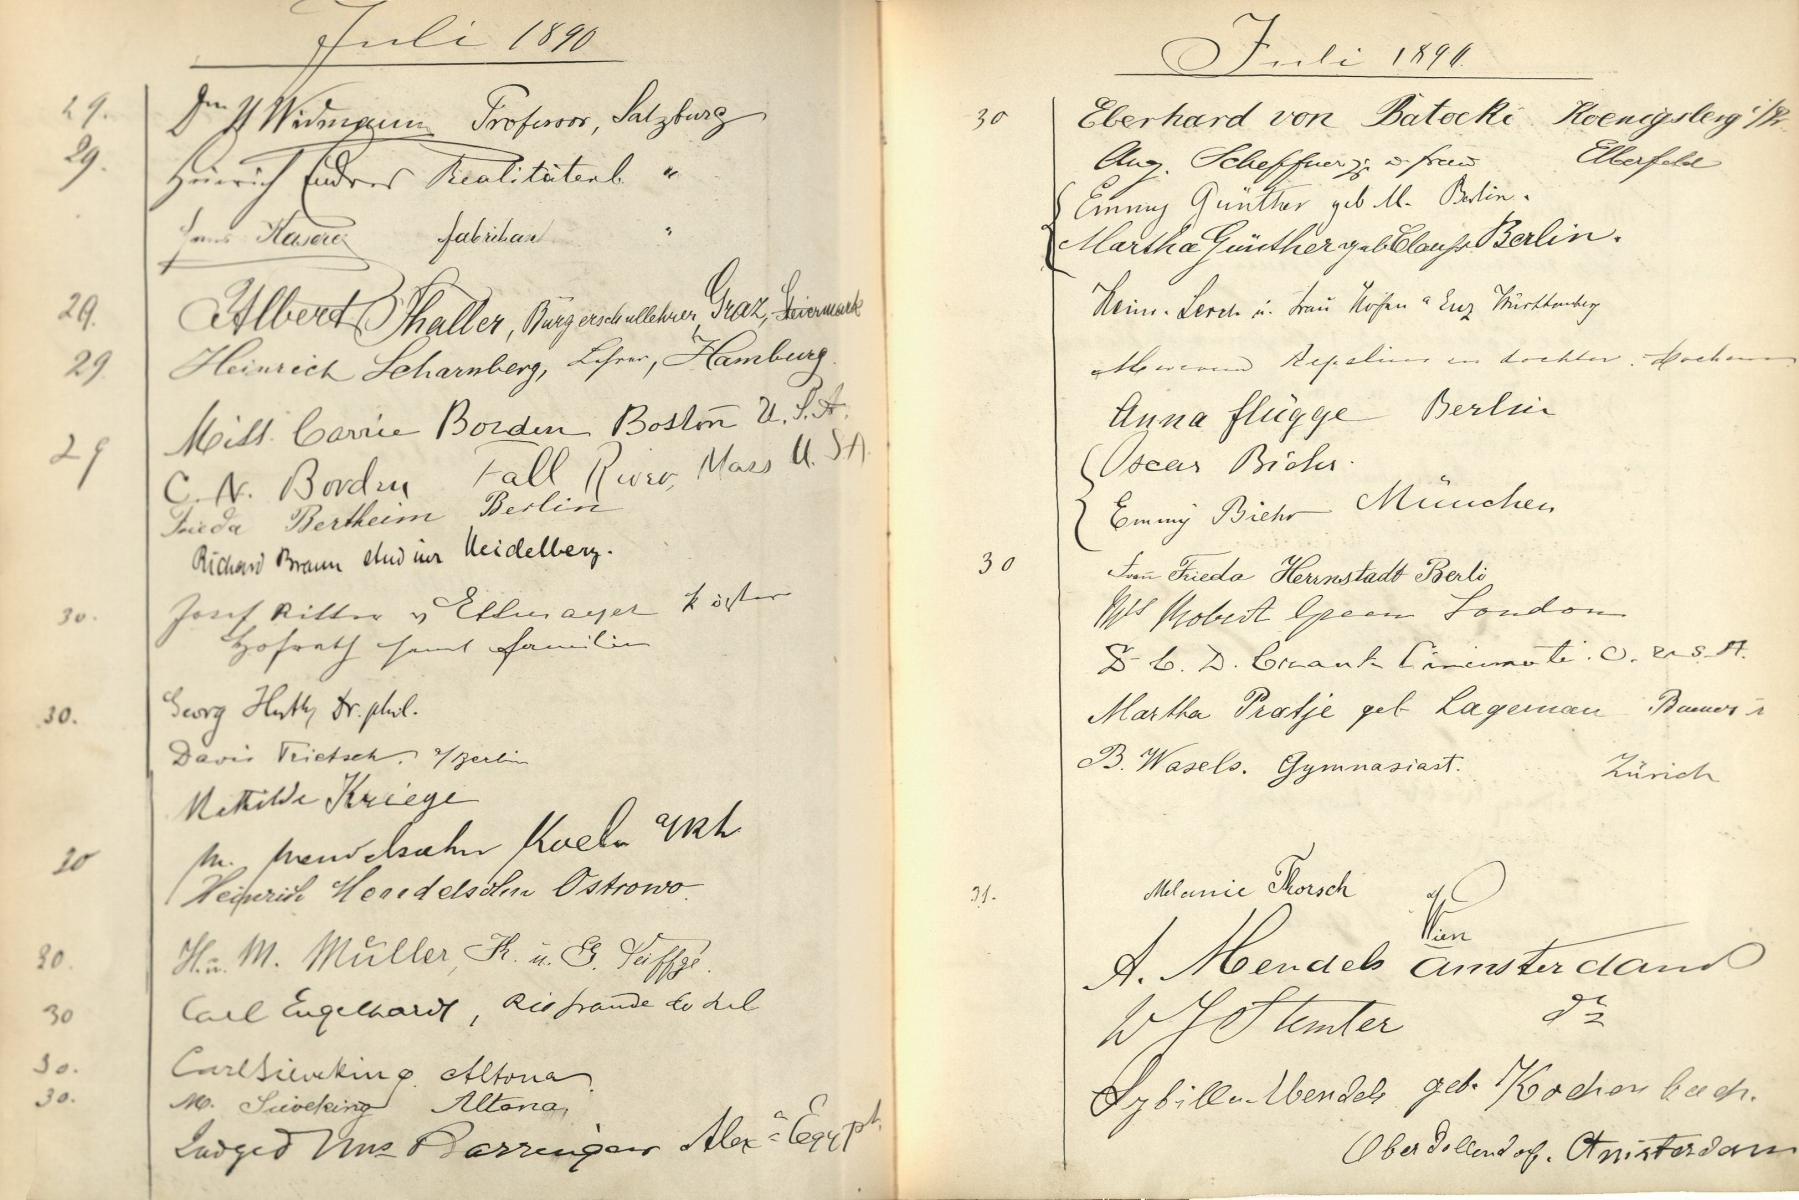 Juli 1890
29. Widmann Professor, Salzburg
29. Heinrich Realitätenb. "
Hans fabrikant "
29. Albert Thaller, Bürgerschullehrer, Graz, Steiermark
29. Heinrich Scharnberg, Lehrer, Hamburg
Miss. Carrie Borden Boston U. S. A.
29 C. N. Borden Fall River, Mass U. S A.
Frieda Bertheim Berlin
Richard Braun stud iur Heidelberg.
30. Josef Ritter v
Hofrath samt familie
30. Georg Huth, Dr. phil.
Davis Trietsch. a/Berlin
Mathilde Kriege
30 M. Mendelssohn Koeln a/Rh
Heinrich Mendelsohn Ostrowo.
30. H. u. M. Müller, K. u. G.
30 Carl Engelhardt, Rio grande do sul
30. Carl Sieveking Altona
30. M. Sieveking Altona,
Judge & Mrs Barringer Alex a Egypt.
Juli 1890.
30 Eberhard von Batocki Koenigsberg i/Pr.
Aug. Scheffner jr. u frau Elberfeld
Emmy Günther geb M. Berlin.
Martha Günther geb Clauss Berlin.
Heinr. Lerch u. frau Höfen a Enz Württemberg
en dochter.
Anna flügge Berlin
Oscar Biehr.
Emmy Biehr München
30 Frau Frieda Herrnstadt Berli
Robert Green London
D. C. D. O. U. S. A.
Martha Pratje geb Lageman
B. Wasels. Gymnasiast. Zürich
31. Melanie Thorsch
Wien
A. Mendels Amsterdam
W J Stemter do
Sybilla Mendels geb.
Oberdollendorf. Amsterdam